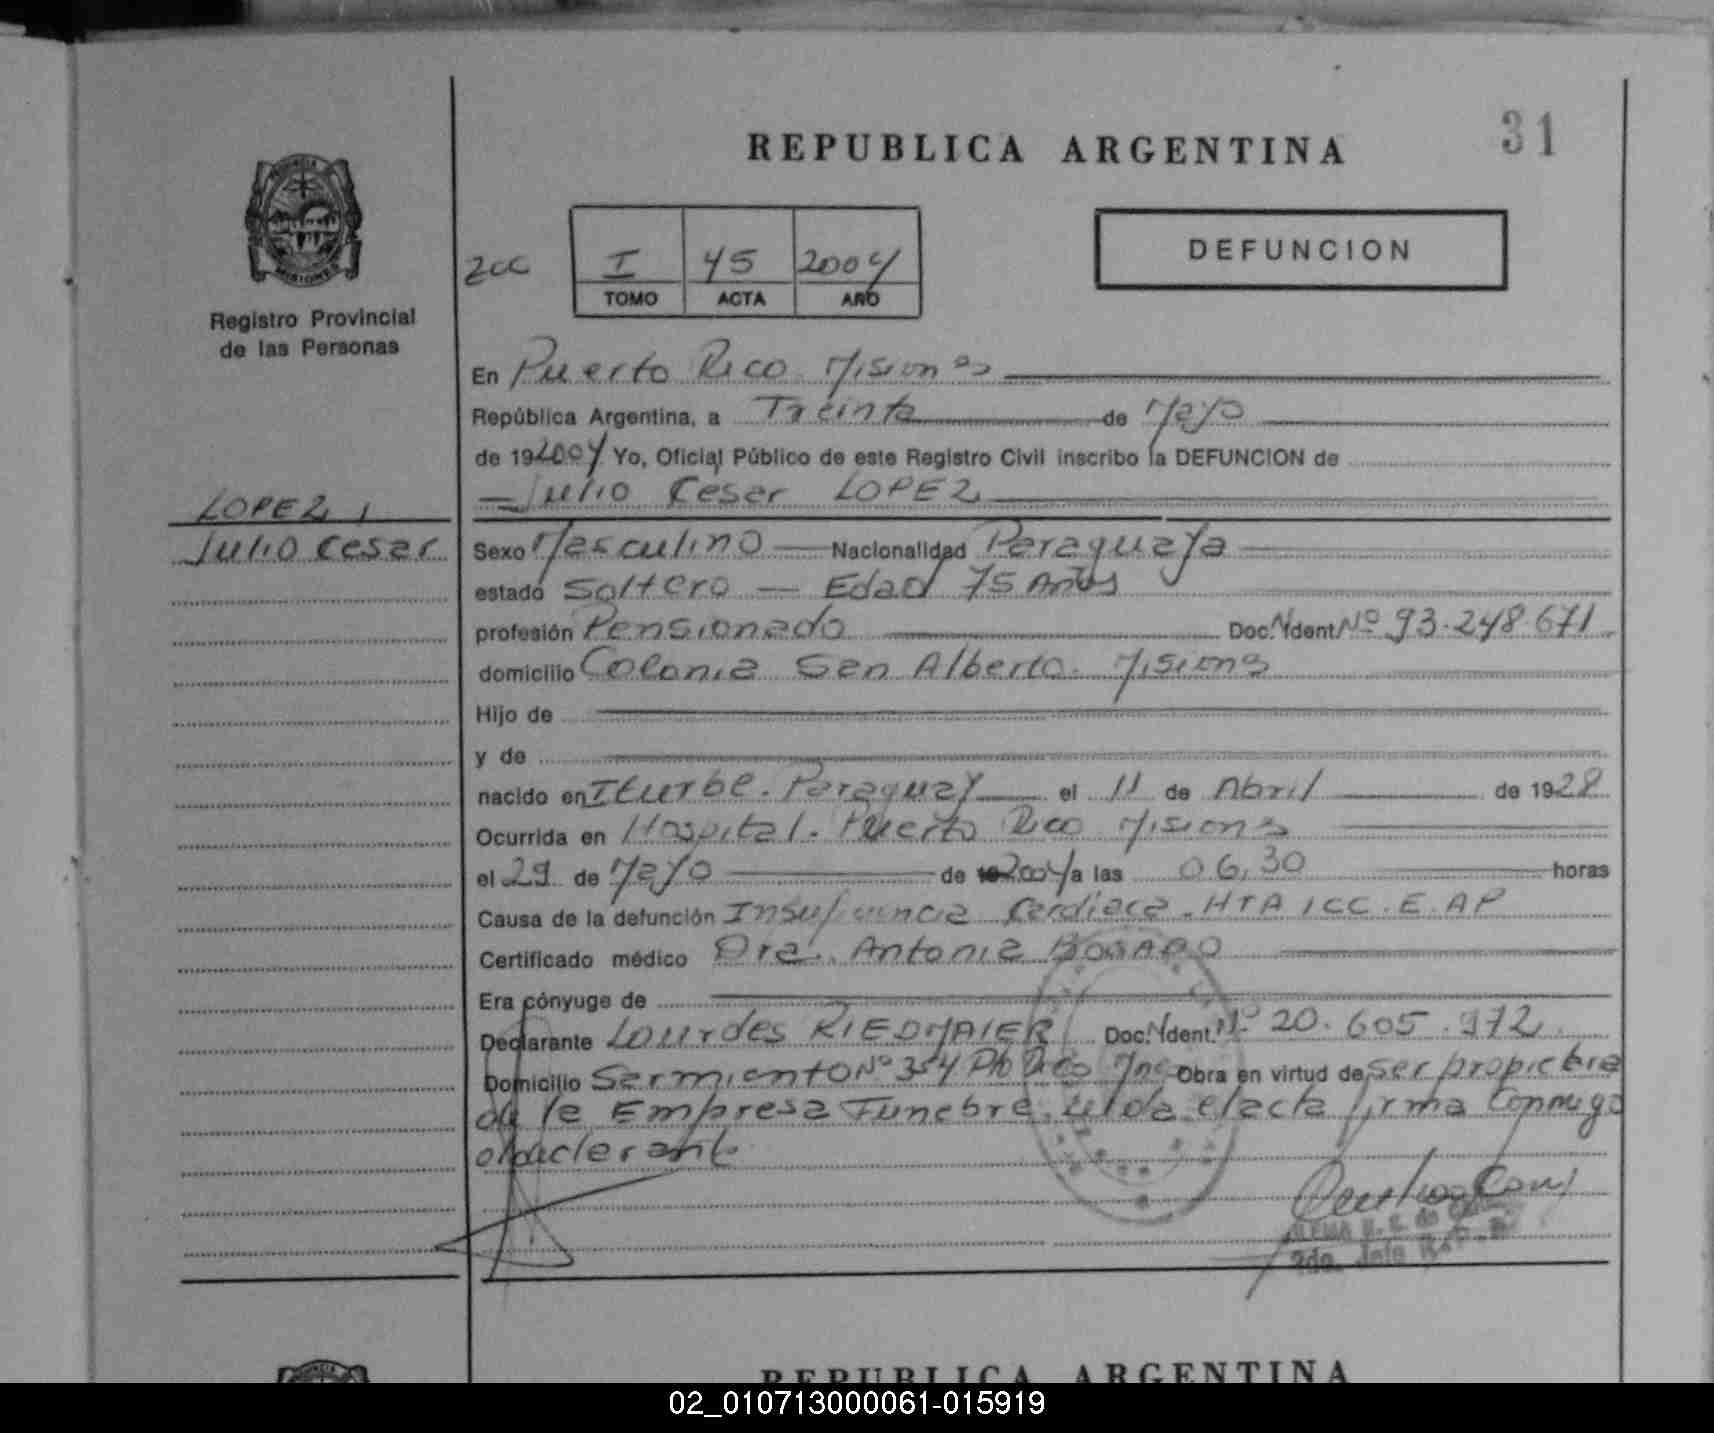 31
REPUBLICA ARGENTINA
DEFUNCION
2cc
I 45 2004
TOMO ACTA AÑO
Registro Provincial
de las Personas
En Puerto Rico. Misiones
República Argentina, a Treinta de Mayo
de 192004 Yo, Oficial Público de este Registro Civil inscribo la DEFUNCION de
Julio Cesar LOPEZ
LOPEZ,
Julio Cesar
Sexo Masculino Nacionalidad Paraguaya
estado Soltero — Edad 75 Años
profesión Pensionado Doc. Ident. Nº 93.248.671
domicilio Colonia San Alberto. Misiones
Hijo de
y de
nacido en Iturbe. Paraguay el 11 de Abril de 1928
Ocurrida en Hospital. Puerto Rico Misiones
el 29 de Mayo de 2004 a las 06,30 horas
Causa de la defunción Insuficiencia Cardiaca. HTA ICC. E. AP
Certificado médico Dra. Antonia BOGADO
Era cónyuge de
Declarante Lourdes RIEDMAIER Doc. Ident. Nº 20.605.972
Domicilio Sarmiento Nº 354 Pto Rico Mnes Obra en virtud de ser propietaria
de la Empresa Funebre. Leida el acta firma Conmigo
el declarante
2do. Jefe
PROVINCIA
MISIONES
REPUBLICA ARGENTINA
02_010713000061-015919